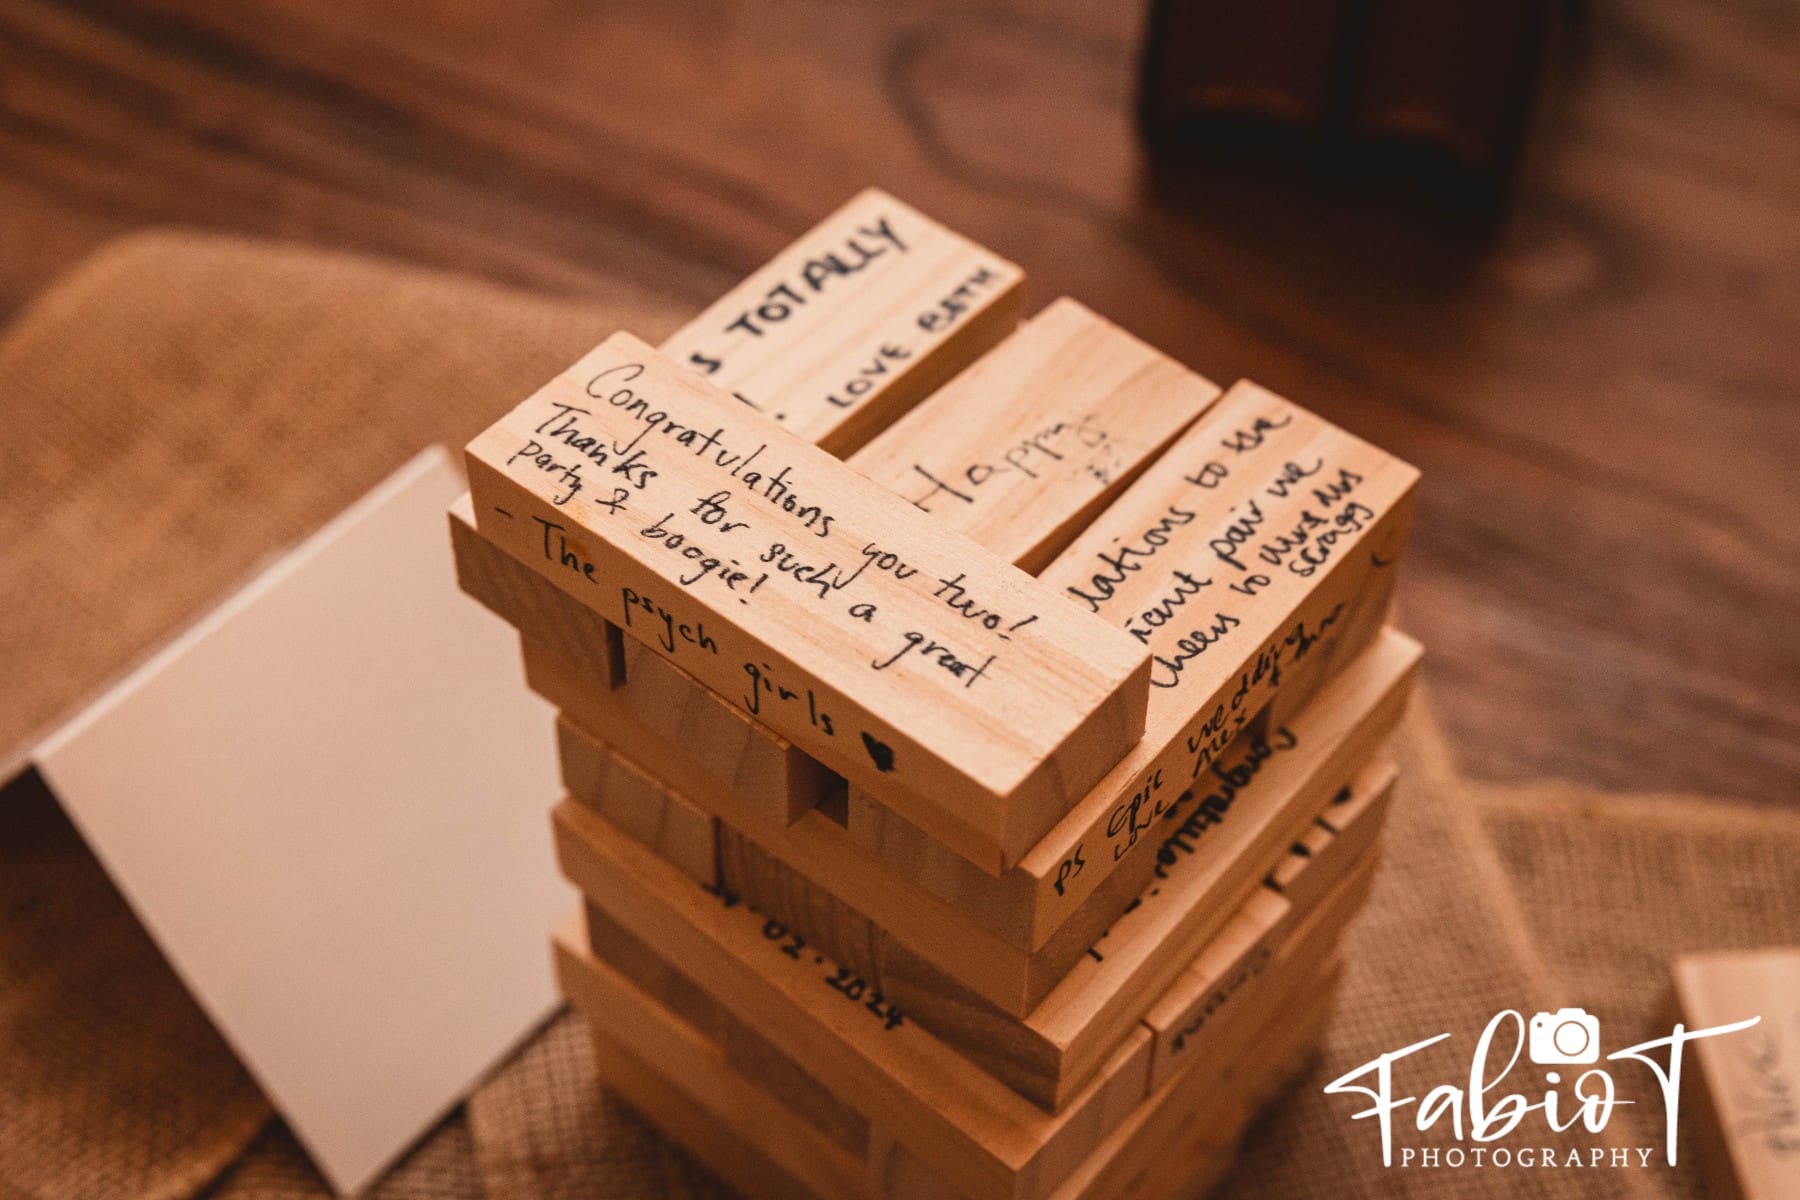 TOTALLY
LOVE BETH
Congratulations you two!
Thanks for such a great
party & boogie!
- The psych girls ♥
Happy
lations to the
iant pair we
cheers to
scragg
PS Epic wedding
love Mex
Congratula
02.2024
Fabio T
PHOTOGRAPHY